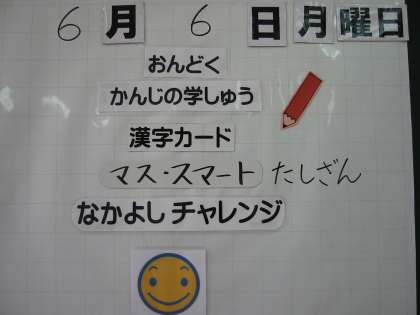 6月 6日 月曜日
おんどく
かんじの学しゅう
漢字カード
マス・スマート たしざん
なかよし チャレンジ